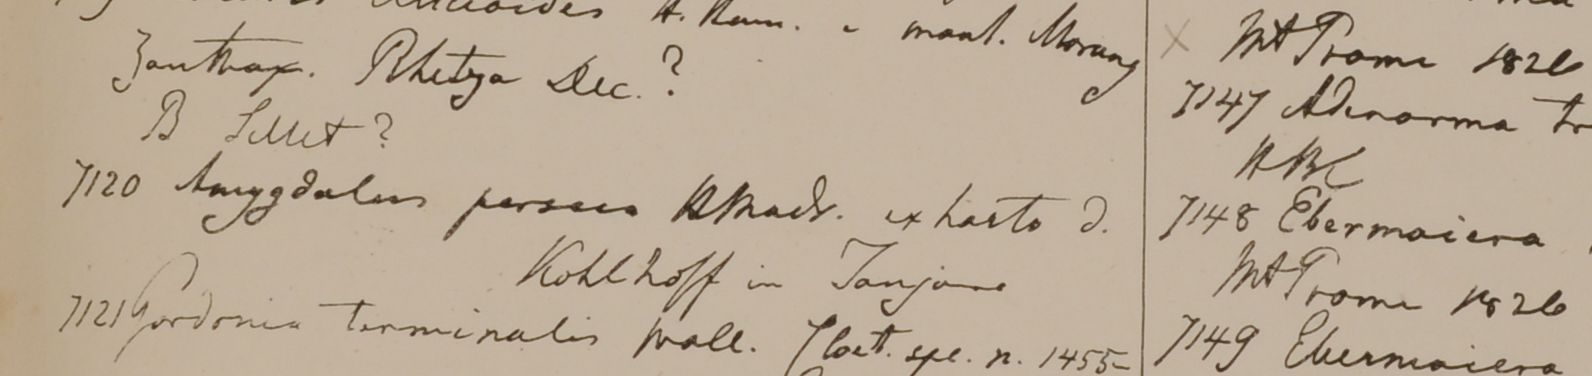 H. Ham. e mont. Morang
Zanthox. Rhetsa Dec.?
B Sillet?
7120 Amygdalus persica HMadr. ex horto d.
Kohlhoff in Tanjore
7121 Gordonia terminalis Wall. spe. n. 1455
Mt Prome 1826
7147 Adenosma
HBC
7148 Ebermaiera
Mt Prome 1826
7149 Ebermaiera